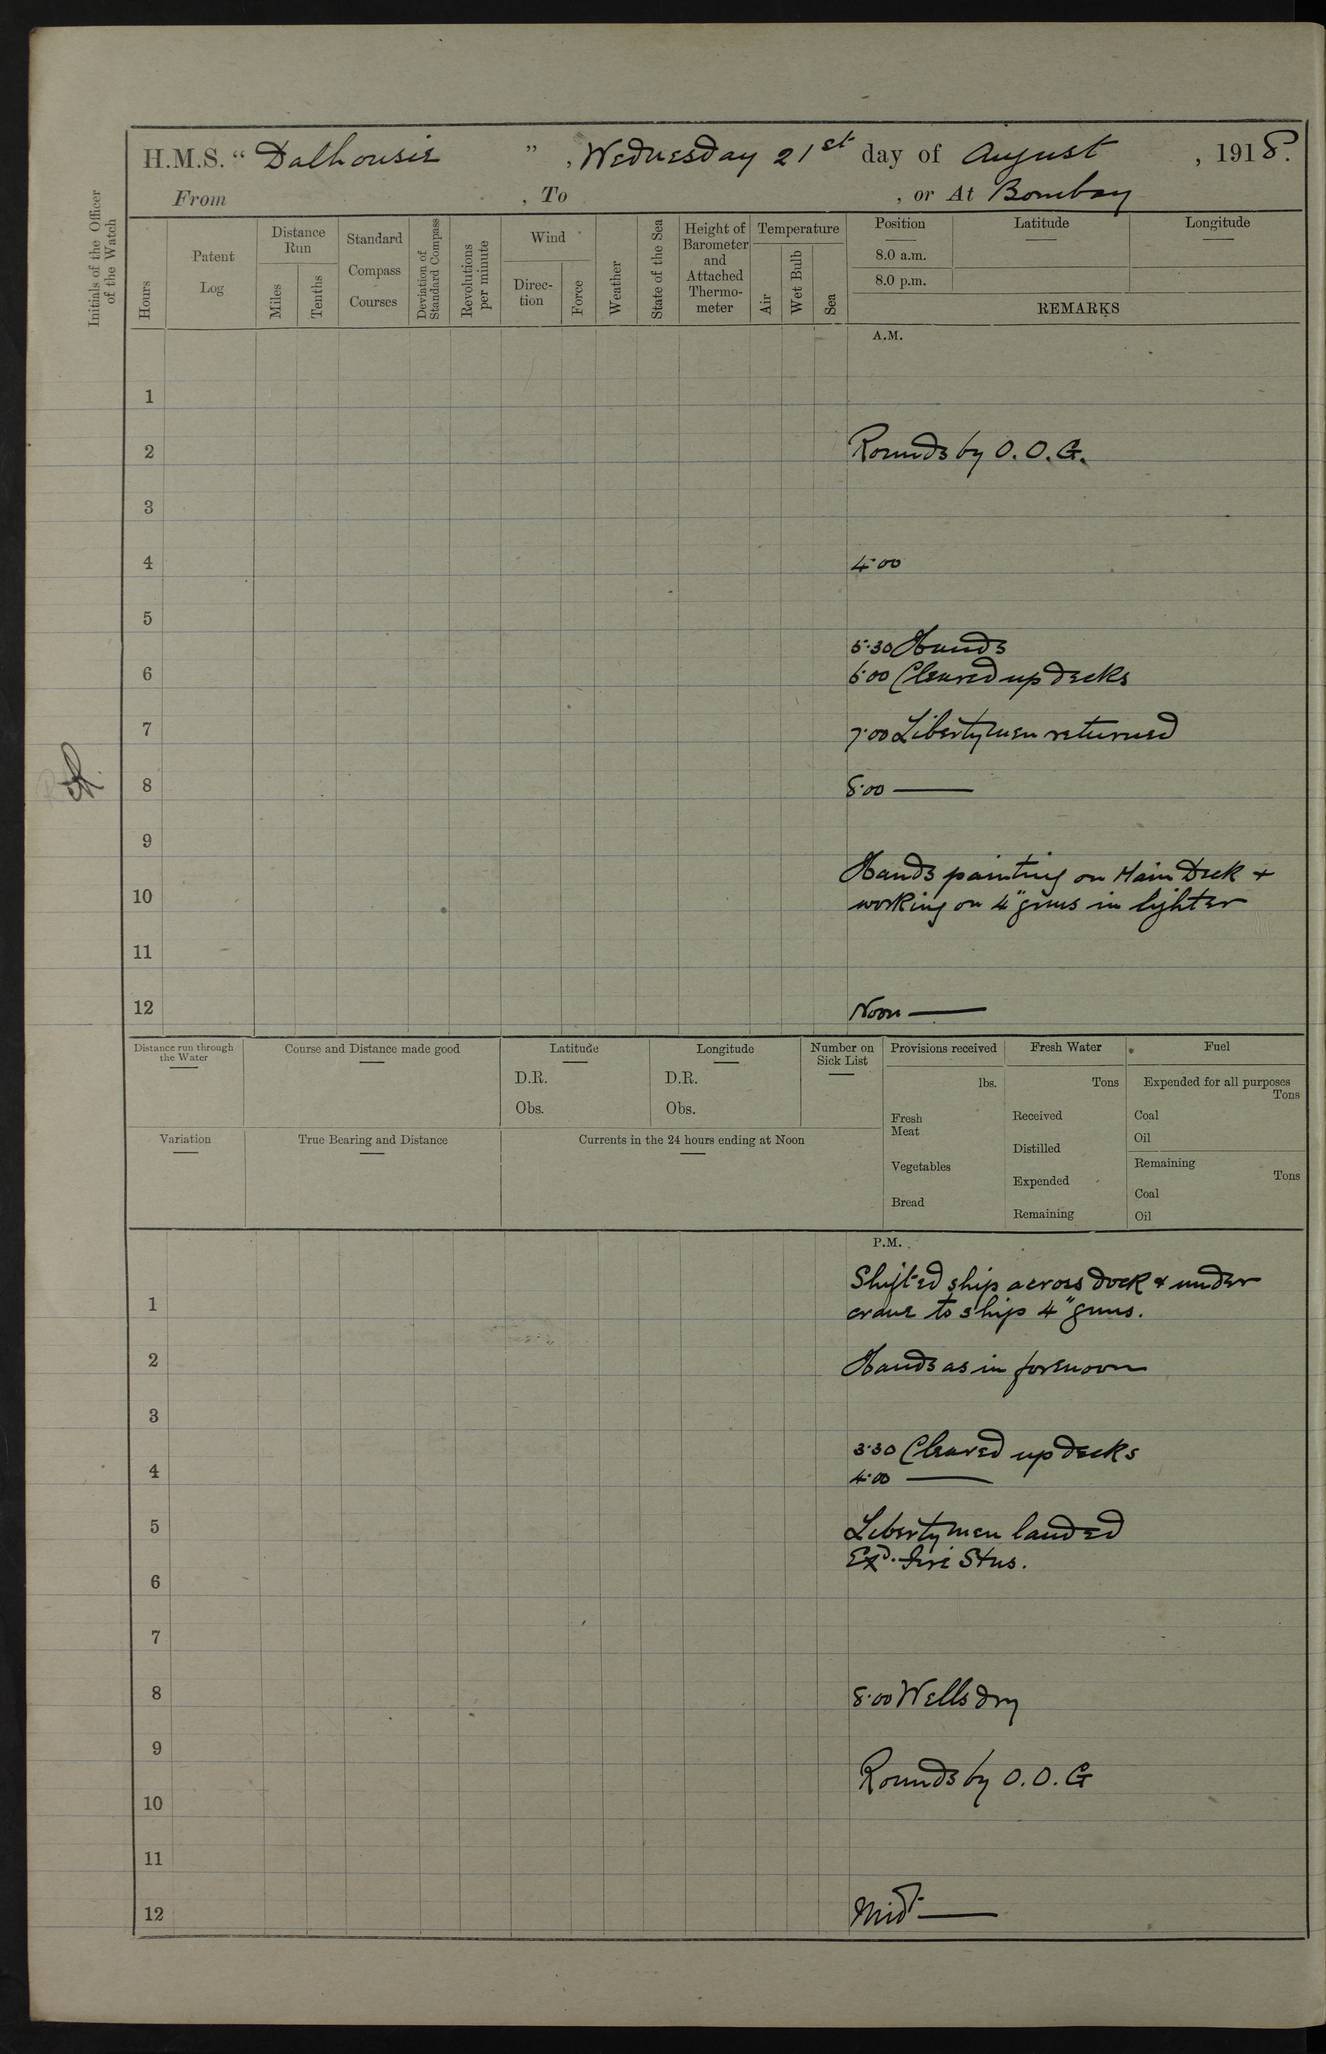 H.M.S. “ Dalhousie ” , Wednesday 21st day of August , 1918.
From , To , or At Bombay
Initials of the Officer
of the Watch
Hours
Patent
Log
Distance
Run
Miles
Tenths
Standard
Compass
Courses
Deviation of
Standard Compass
Revolutions
per minute
Wind
Direc-
tion
Force
Weather
State of the Sea
Height of
Barometer
and
Attached
Thermo-
meter
Temperature
Air
Wet Bulb
Sea
Position
Latitude
Longitude
8.0 a.m.
8.0 p.m.
REMARKS
A.M.
1
2 Rounds by O.O.G.
3
4 4.00
5
5.30 Hands
6 6.00 Cleared up decks
7 7.00 Libertymen returned
8 8.00 —
9
Hands painting on Main Deck +
10 working on 4" guns in lighter
11
12 Noon —
Distance run through
the Water
Course and Distance made good
Latitude
D.R.
Obs.
Longitude
D.R.
Obs.
Number on
Sick List
Provisions received
lbs.
Fresh
Meat
Vegetables
Bread
Fresh Water
Tons
Received
Distilled
Expended
Remaining
Fuel
Expended for all purposes
Tons
Coal
Oil
Remaining
Tons
Coal
Oil
Variation
True Bearing and Distance
Currents in the 24 hours ending at Noon
P.M.
Shifted ship across dock & under
1 crane to ship 4" guns.
2 Hands as in forenoon
3
3.30 Cleared up decks
4 4.00 —
5 Libertymen landed
Exd. fire Stns.
6
7
8 8.00 Wells dry
9
Rounds by O.O.G
10
11
12 Midt —